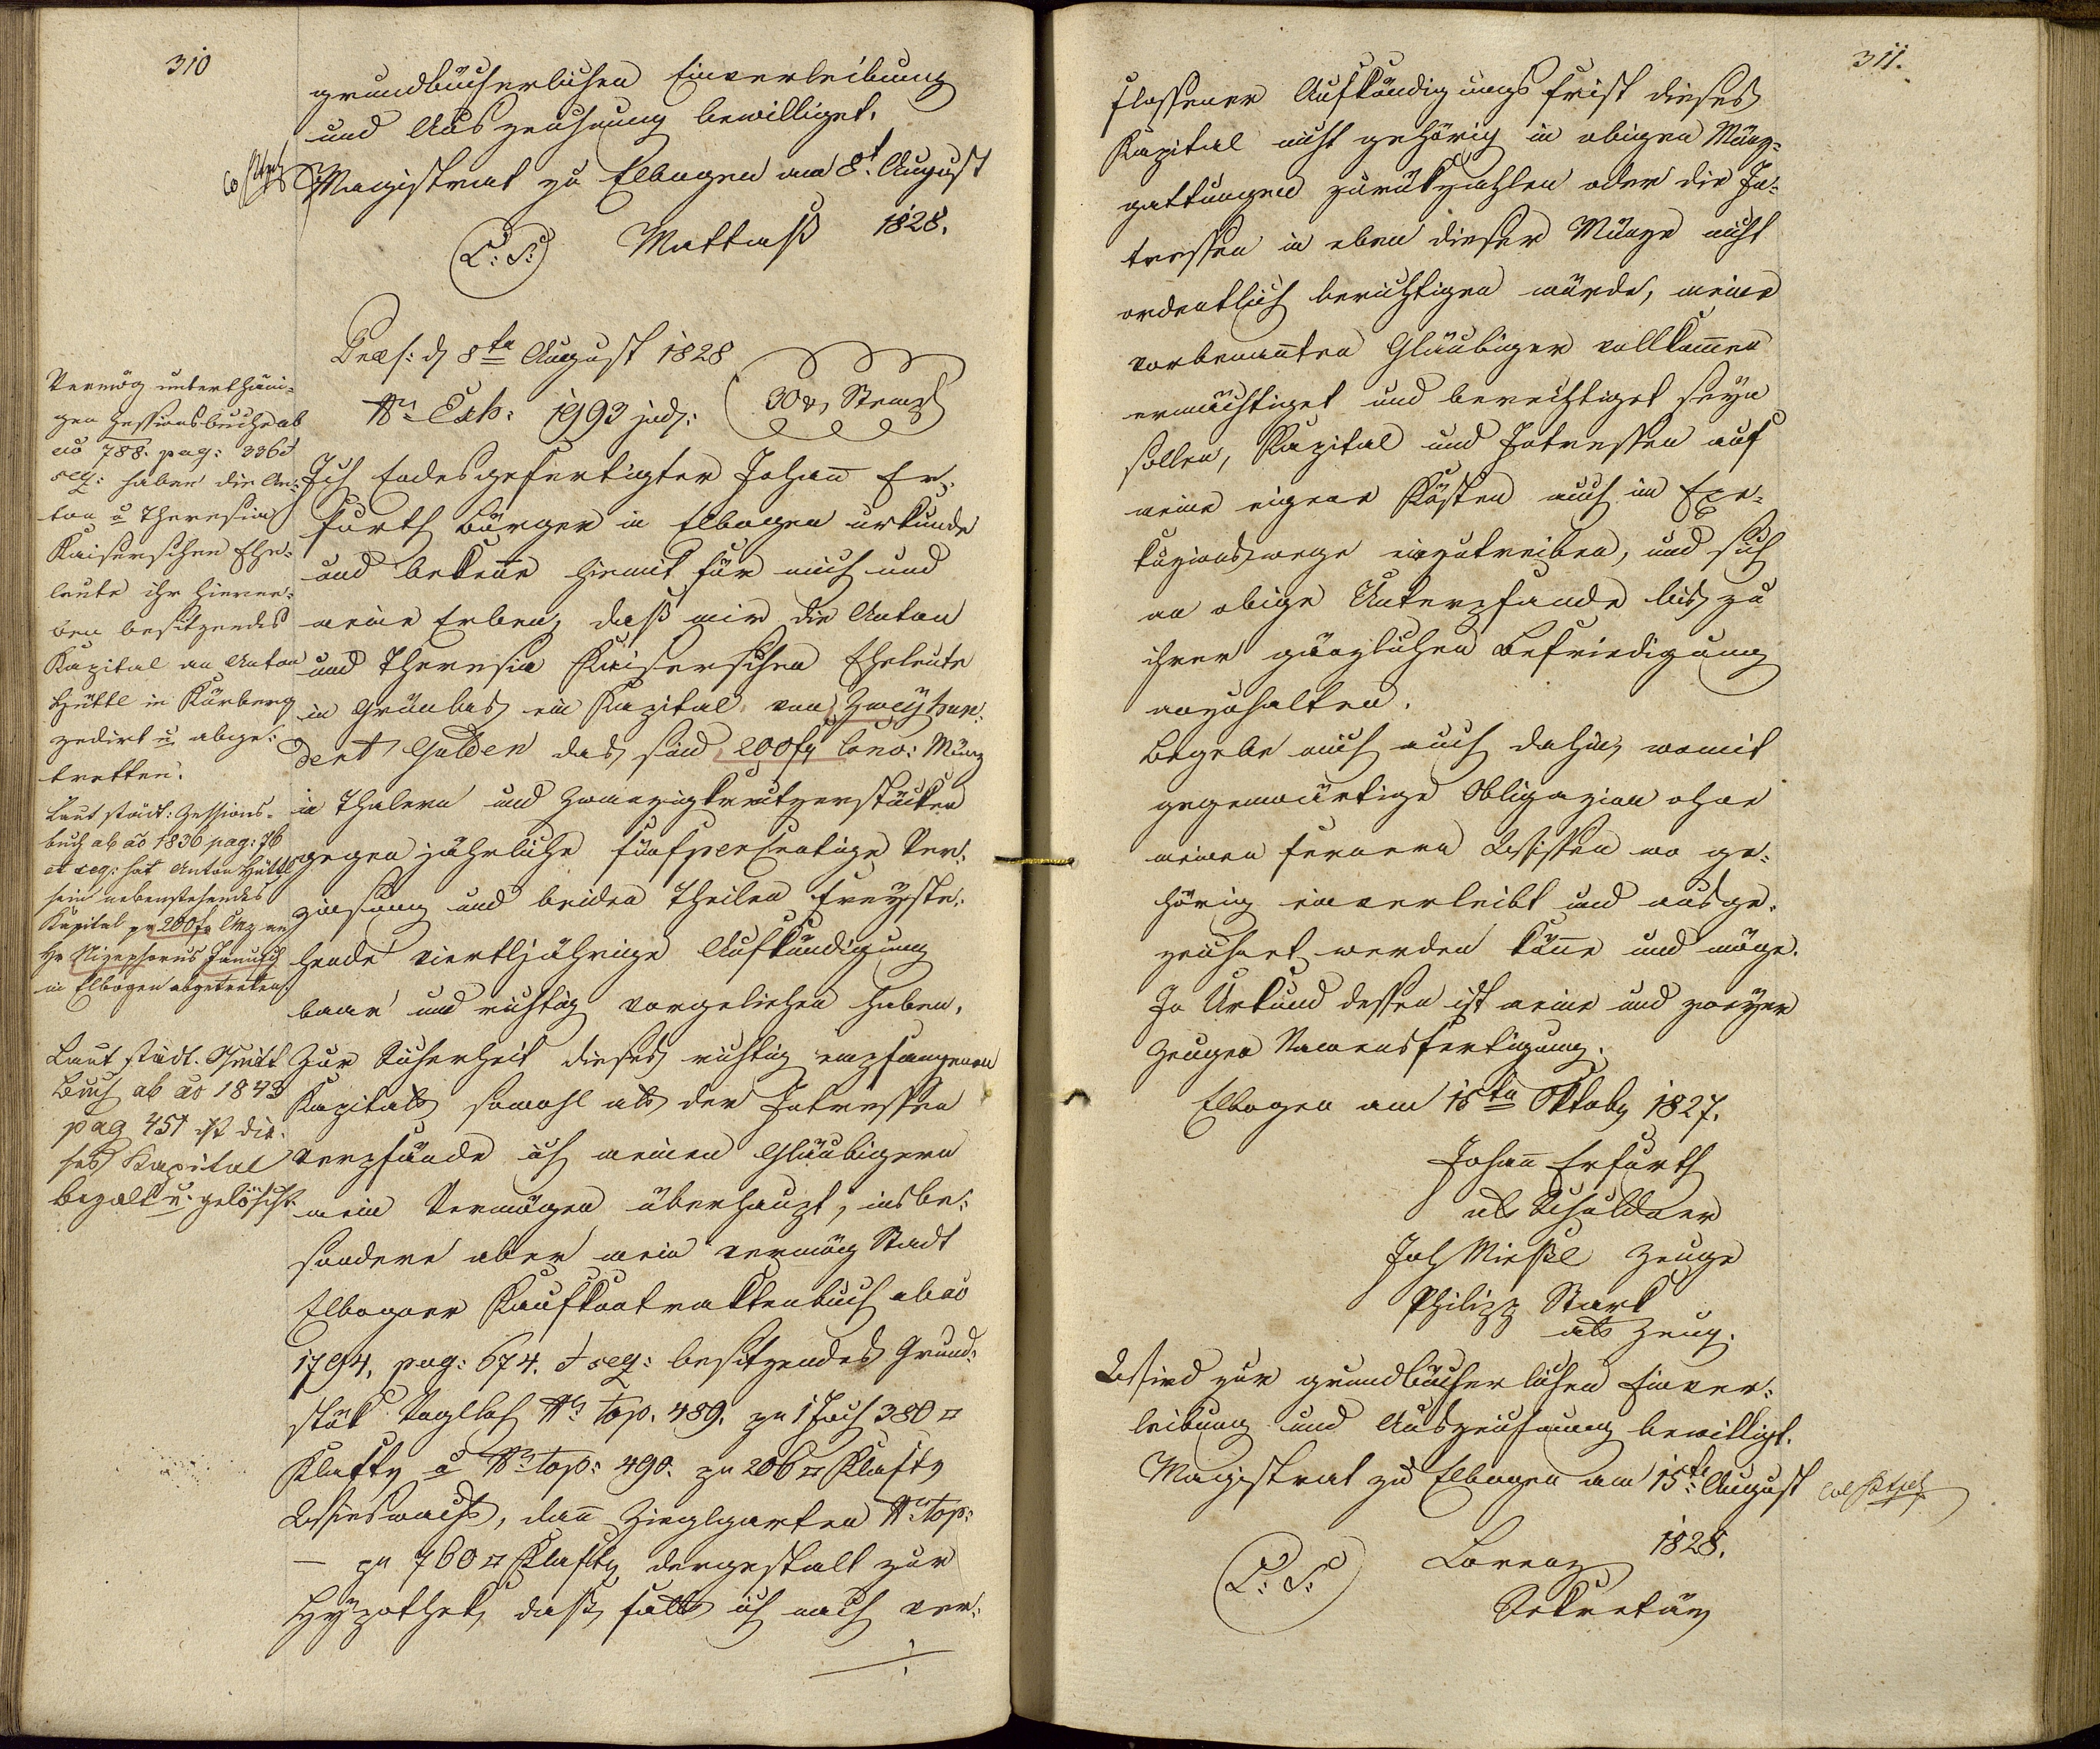 310
grundbücherlichen Einverleibung
und Auszeichnung bewilliget.
Magistrat zu Elbogen am 8t. August
1828.
L: S: Mattauß
Præs: d 8ten August 1828
Nr Exh: 1993 jud:
30 x Stempl
Ich Endesgefertigter Johann Er-
furth Bürger in Elbogen urkunde
und bekenne hiemit für mich und
meine Erben, daß mir die Anton
und Theresia Kaiserschen Eheleute
in Grünlas ein Kapital von Zweyhun-
dert Gulden das sind 200 fl Conv: Münz
in Thalern und Zwanzigkreutzerstücken
gegen jährliche fünfpercentige Ver-
zinsung und beiden Theilen freyste-
hende viertljährige Aufkündigung
baar und richtig vorgeliehen haben.
Zur Sicherheit dieses richtig empfangenen
Kapitals sowohl als der Interessen
verpfände ich meinen Gläubigern
mein Vermögen überhaupt, insbe-
sondere aber mein vermög Stadt
Elbogner Kaufkontraktenbuch ab ao
1794, pag: 674. et seq: besitzendes Grund-
stük Vogelloh Nr top. 489. pr 1 Joch 380 □
Klafter u Nr top: 490. pr 206 □ Klafter
Wieswachs, dann Zieglgarten Nr top:
— pr 760 □ Klafter dergestalt zur
Hypothek, daß, falls ich nach ver-
Vermög unterthäni-
gen Zessionsbuche ab
ao 788. pag: 336 et
seq: haben die An-
ton u Theresia
Kaiserschen Ehe-
leute ihr hierne-
ben besitzendes
Kapital an Anton
Hüttl in Kürberg
zedirt u abge-
tretten.
Laut städt: Zessions-
buch ab ao 1836 pag: 76
et seq: hat Anton Hüttl
sein nebenstehendes
Kapital pr 200 f CMz an
Hr Nizephorus Janusch
in Elbogen abgetreten.
Laut städt. Quitt
Buch ab ao 1843
pag 451 ist die-
ses Kapital
bezalt u. gelöscht
311.
flossener Aufkündigungsfrist dieses
Kapital nicht gehörig in obigen Münz-
gattungen zurückzahlen oder die In-
tressen in eben dieser Münze nicht
ordentlich berichtigen würde, meine
vorbenannten Gläubiger vollkommen
ermächtiget und berechtiget seyn
sollen, Kapital und Intressen auf
meine eigene Kösten auch im Exe-
kuzionswege einzutreiben, und sich
an obige Unterpfande bis zu
ihrer gänzlichen Befriedigung
anzuhalten.
Begebe mich auch dahin, womit
gegenwärtige Obligazion ohne
meinen fernern Wissen wo ge-
hörig einverleibt und ausge-
zeichnet werden könne und möge.
In Urkund dessen ist meine und zweyer
Zeugen Namensfertigung.
Elbogen am 15ten Oktober 1827.
Johann Erfurth
als Schuldner
Joh Mießl Zeuge
Philipp Stark
als Zeug.
Wird zur grundbücherlichen Einver-
leibung und Auszeichnung bewilligt.
Magistrat zu Elbogen am 15te August
1828.
L: S: Lorenz
Sekretär